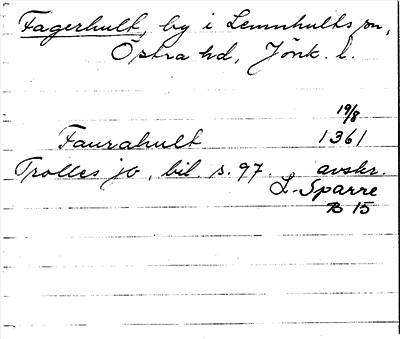 Fagerhult, by i Lemnhults sn,
Östra hd, Jönk. l.
19/8
Faurahult 1361
Trolles jb, bil s. 97. avskr.
L. Sparre
B 15